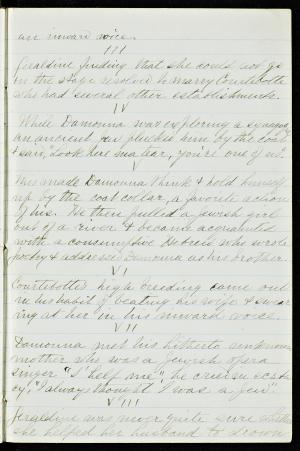 an inward voice.
III
Geraldine finding that she could not go
on the stage resolved to marry Courtebotte
who had several other establishments.
IV
While Damonna was exploring a synagog
an ancient Jew plucked him by the coat
& said, "Look here ma dear, you're one of us".
V
This made Damonna think & hold himself
up by the coat collar, a favorite action
of his. He then pulled a Jewish girl
out of a river & became acquainted
with a consumptive Hebrew who wrote
poetry & addressed Damonna as his brother.
VI
Courtebotte's high breeding came out
in his habit of beating his wife & swear
ing at her in his inward voice.
VII
Damonna met his hitherto unknown
mother who was a Jewish opera
singer "S'help me", he cried in ecsta
cy, "I always thought I was a Jew".
VIII
Geraldine was never quite sure whether
she helped her husband to drown